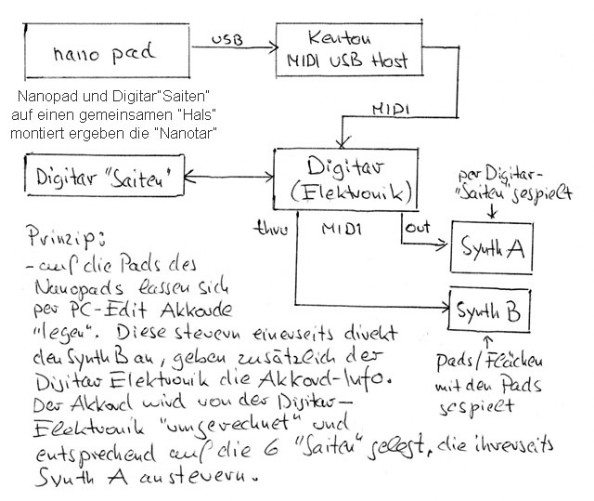 nano pad
USB
Kenton
MIDI USB Host
Nanopad und Digitar"Saiten"
auf einen gemeinsamen "Hals"
montiert ergeben die "Nanotar"
MIDI
Digitar "Saiten"
Digitar
(Elektronik)
per Digitar-
"Saiten" gespielt
thru MIDI out
Synth A
Synth B
Pads/Flächen
mit den Pads
gespielt
Prinzip:
- auf die Pads des
Nanopads lassen sich
per PC-Edit Akkorde
"legen". Diese steuern einerseits direkt
den Synth B an, geben zusätzlich der
Digitar Elektronik die Akkord-Info.
Der Akkord wird von der Digitar-
Elektronik "umgerechnet" und
entsprechend auf die 6 "Saiten" gelegt, die ihrerseits
Synth A ansteuern.